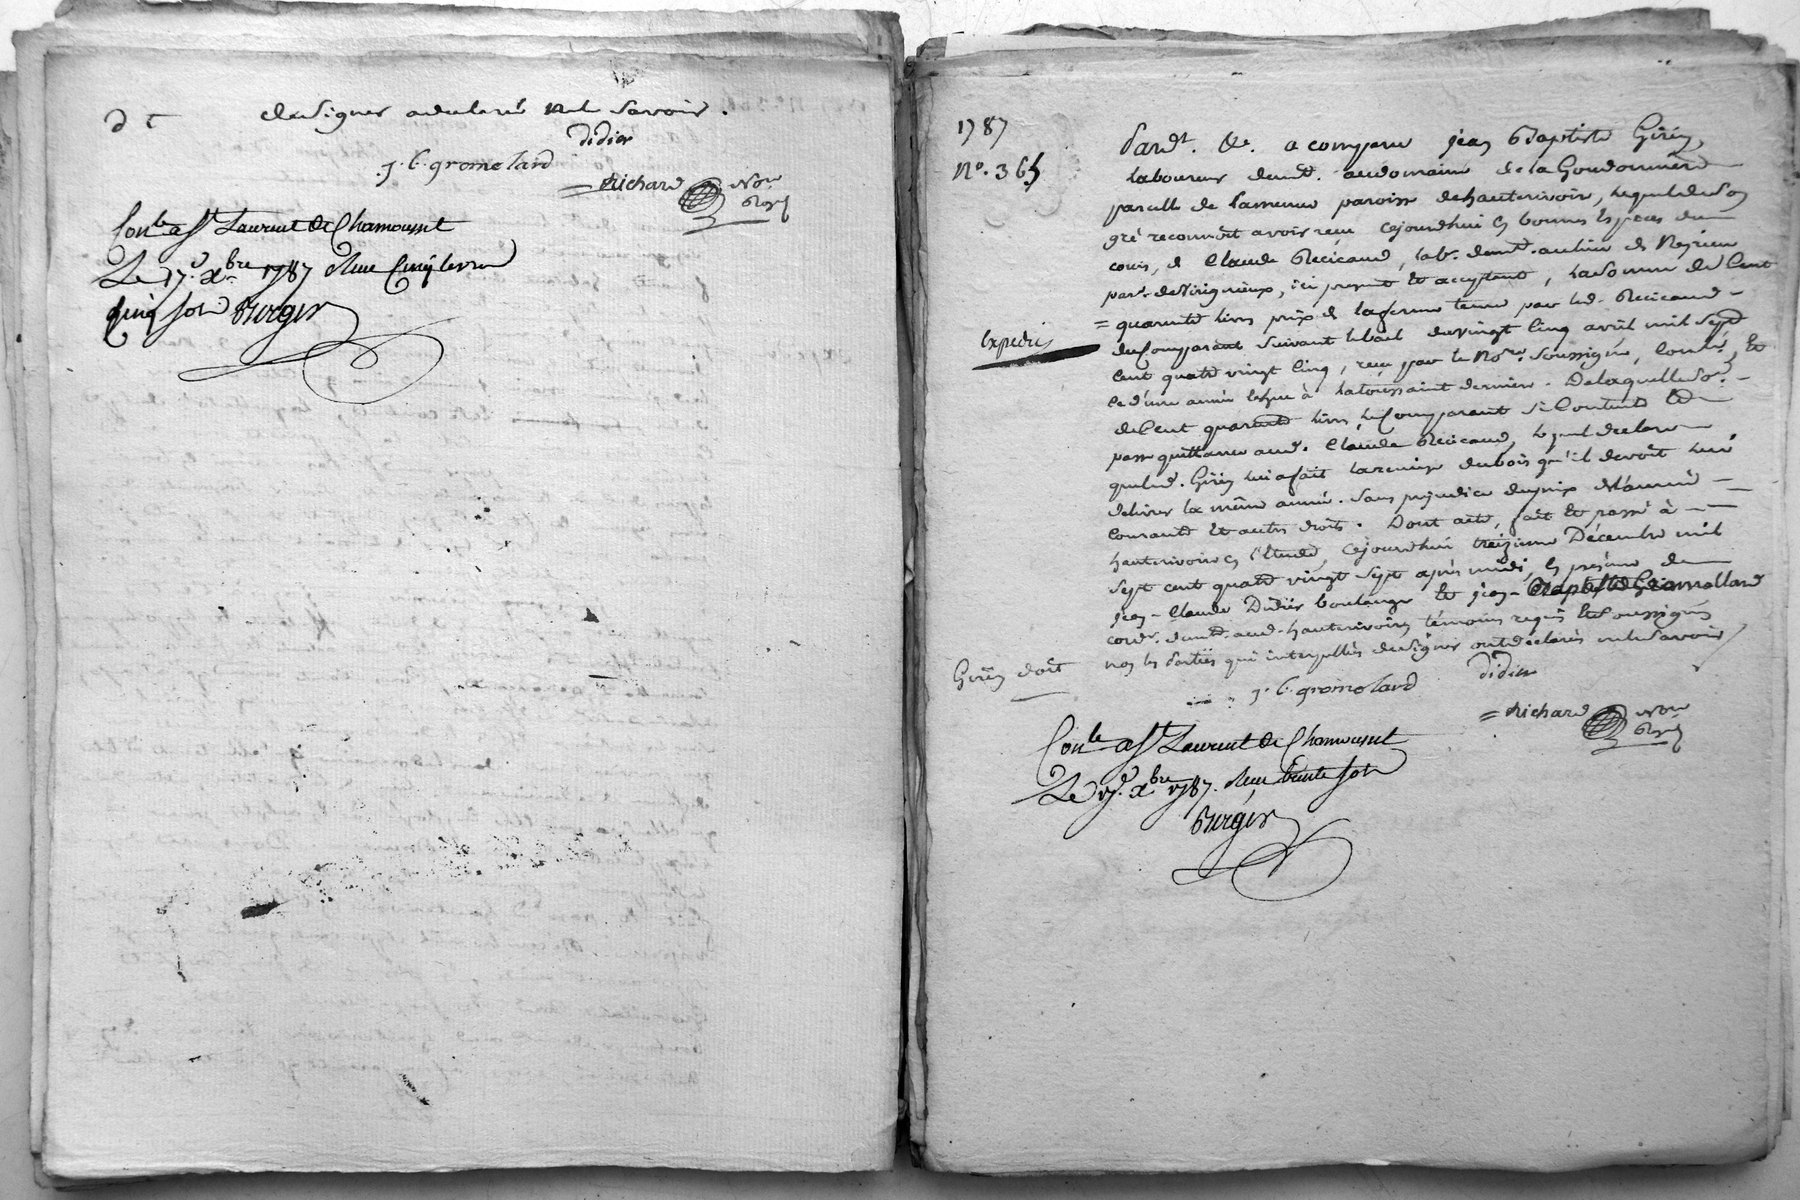 de signer a declaré ne le savoir.
didier
J. b. gromolard
= Richard Nore Royal
Conlé a St Laurent de Chamousset
Le 17e. Xbre 1787 Reçu Cinq livres
quinze sols Burger
1787
No. 365
Pardt. &c. a comparu jean Baptiste Giréy,
laboureur demt. au domaine de la Goudonniere
parcelle de lamenue paroisse de hauterivoir, lequel de son
gré reconnoit avoir reçu cejourdhui en bonnes Espèces du
cours, de Claude Recicaud, lab. demt. au lieu de Meyrieu
par. de Virigneux, ici present et acceptant, la somme de Cent
= quarante livres prix de la ferme tenue par led. Recicaud -
du Comparant suivant le bail du vingt Cinq avril mil sept
Cent quatre vingt Cinq, reçu par le Nore. soussigné, Contlé, et
ce d'une année Echue à la toussaint derniere. De laquelle some. -
de Cent quarante livres, le Comparant se Contente et
passe quittance aud. Claude Recicaud, lequel declare
que led. Giréy lui a fait la remise du bois qu'il devoit lui
delivrer la même année. Sans prejudice du prix de l'année
Courante et autres droits. Dont acte, fait et passé à
hauterivoire en l'Etude, Cejourdhui treizieme Décembre mil
Sept cent quatre vingt Sept après midi, En présence de
jean-Claude Didier boulanger et jean-Baptiste Gromollard
cordr. demt. aud. hauterivoire, témoins requis et soussignés
non les parties qui interpellés de signer ont déclarés ne le savoir /
Expedié
Giréy doit
J. b. gromolard
didier
= Richard Nore Royal
Conlé a St Laurent de Chamousset
Le 17e. Xbre 1787. Reçu trente sols
Burger